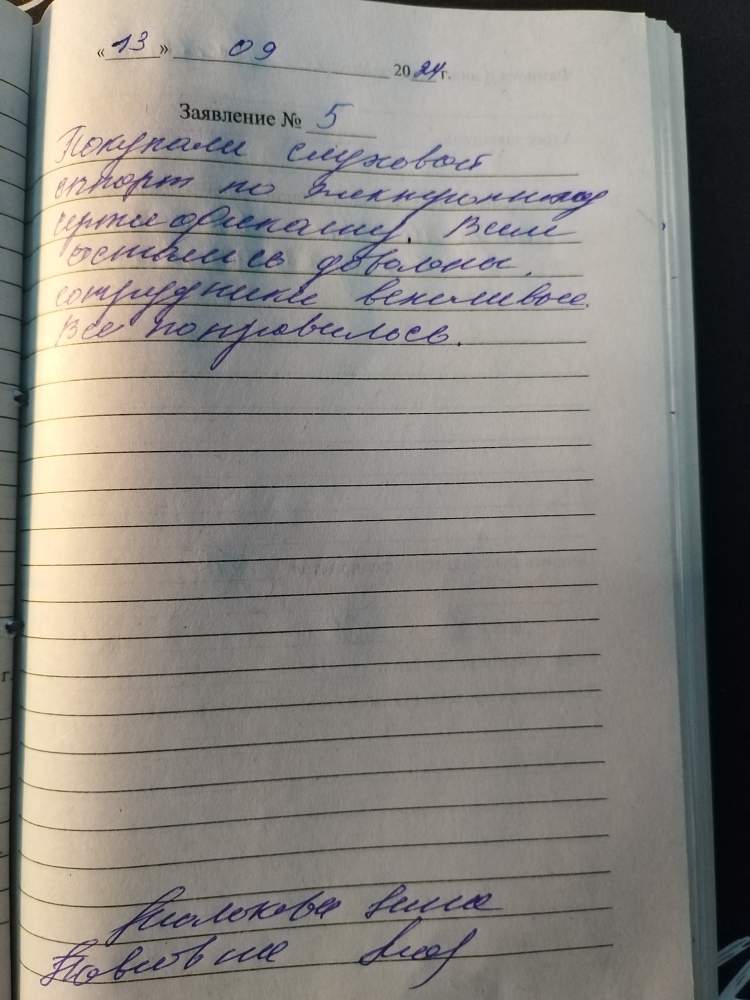 «13» 09 2024 г.
Заявление № 5
Покупали слуховой
аппарат по электронному
сертификату. Всем
остались довольны.
сотрудники вежливые.
Все понравилось.
Павловна